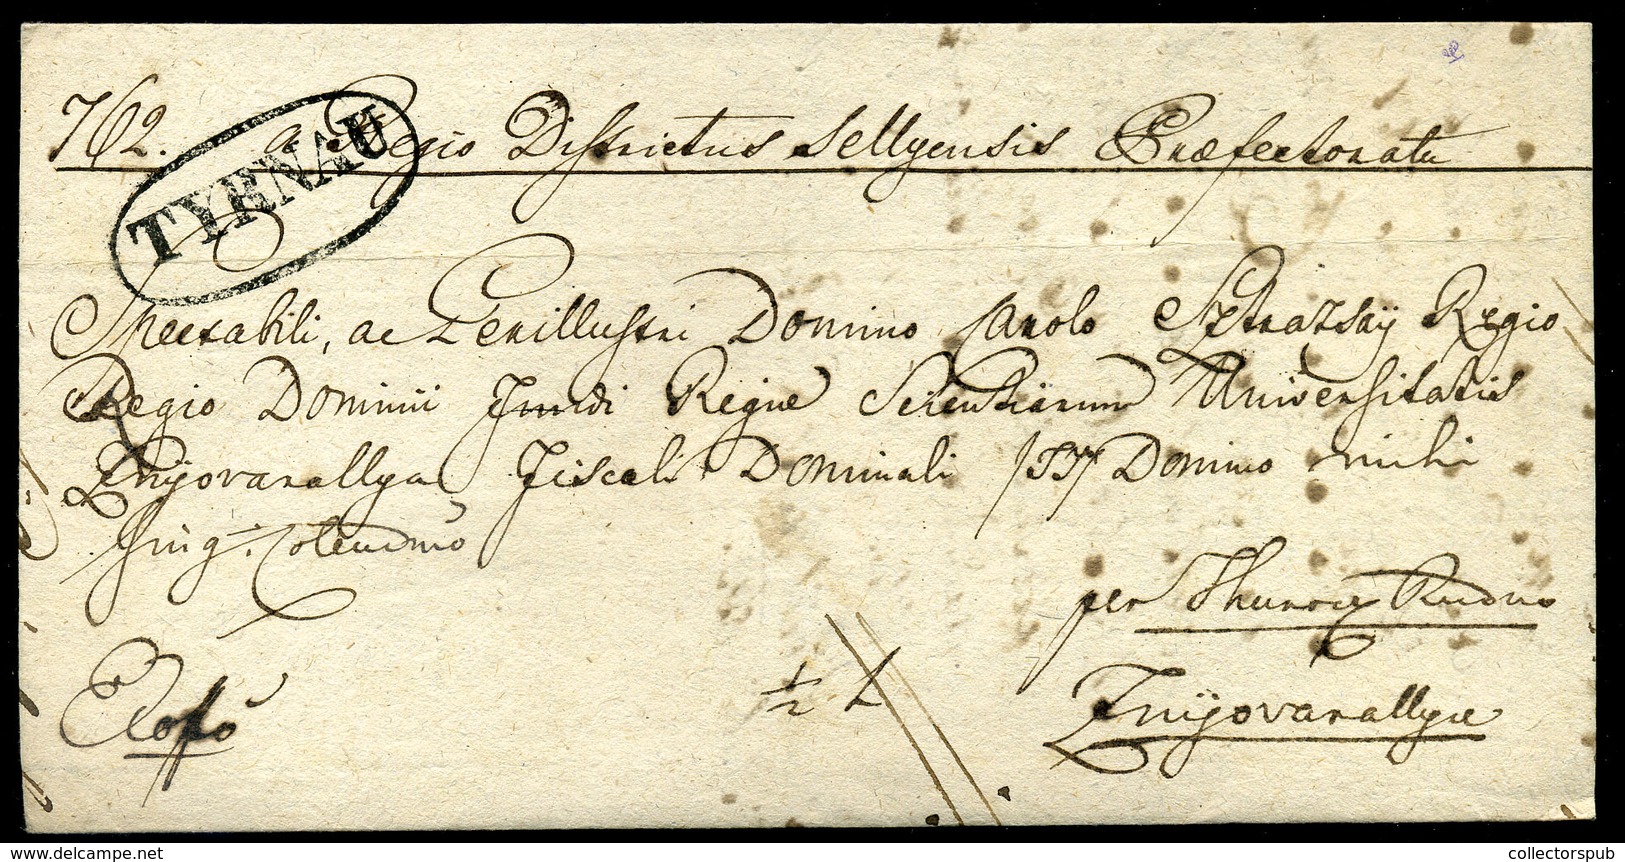 762. a Regio Districtus Sellyensis Præfectoratu
TYRNAU
Spectabili, ac Perillustri Domino Carolo Sztrazsaÿ Regio
Regio Dominii Fundi Regiae Scientiarum Universitatis
Znijovarallya Fiscali Dominali /:Tit:/ Domino mihi
Sing. Colendmo
per Thurocz Rudno
Exoffo
1/2 L
Znijovarallyæ
collectorspub